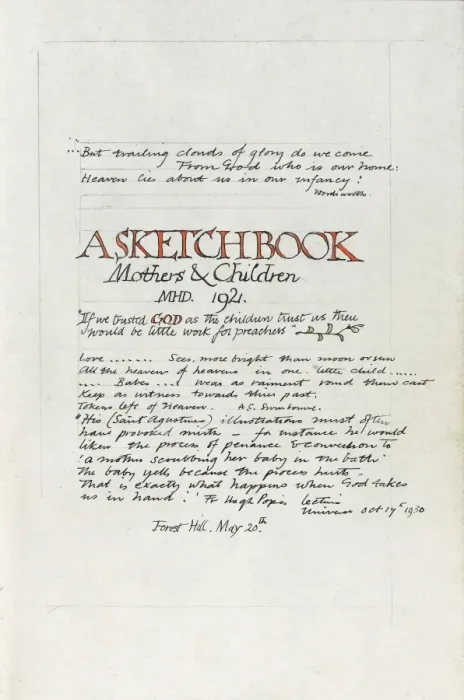 ...But trailing clouds of glory do we come
From God who is our home:
Heaven lies about us in our infancy!
Wordsworth.
A SKETCHBOOK
Mothers & Children
MHD. 1921.
"If we trusted GOD as the children trust us there
would be little work for preachers"
Love ....... Sees, more bright than moon or sun
All the heaven of heavens in one little child ......
.... Babes .... wear as raiment round them cast
Keep as witness towards their past.
Tokens left of heaven. A.C. Swinburne.
"His (Saint Agustines) illustrations must often
have provoked mirth – for instance he would
liken the process of penance & conversion to
'a mother scrubbing her baby in the bath'
the baby yells because the process hurts –
That is exactly what happens when God takes
us in hand!' Fr Hugh Popes lecture
Universe Oct 17 1930
Forest Hill. May 20th.